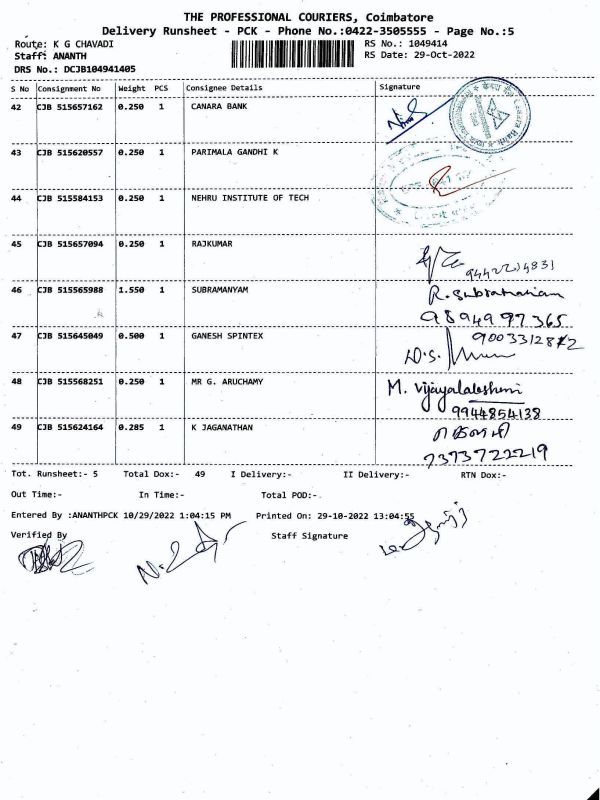 THE PROFESSIONAL COURIERS, Coimbatore
Delivery Runsheet - PCK - Phone No.:0422-3505555 - Page No.:5
Route: K G CHAVADI RS No.: 1049414
Staff: ANANTH RS Date: 29-Oct-2022
DRS No.: DCJB104941405
S No Consignment No Weight PCS Consignee Details Signature
42 CJB 515657162 0.250 1 CANARA BANK
43 CJB 515620557 0.250 1 PARIMALA GANDHI K
44 CJB 515584153 0.250 1 NEHRU INSTITUTE OF TECH
45 CJB 515657094 0.250 1 RAJKUMAR
46 CJB 515565988 1.550 1 SUBRAMANYAM R. Subramaniam
9894997365
47 CJB 515645049 0.500 1 GANESH SPINTEX
48 CJB 515568251 0.250 1 MR G. ARUCHAMY M. Vijayalakshmi
9944854138
49 CJB 515624164 0.285 1 K JAGANATHAN
7373722219
Tot. Runsheet:- 5 Total Dox:- 49 I Delivery:- II Delivery:- RTN Dox:-
Out Time:- In Time:- Total POD:-
Entered By :ANANTHPCK 10/29/2022 1:04:15 PM Printed On: 29-10-2022 13:04:55
Verified By Staff Signature